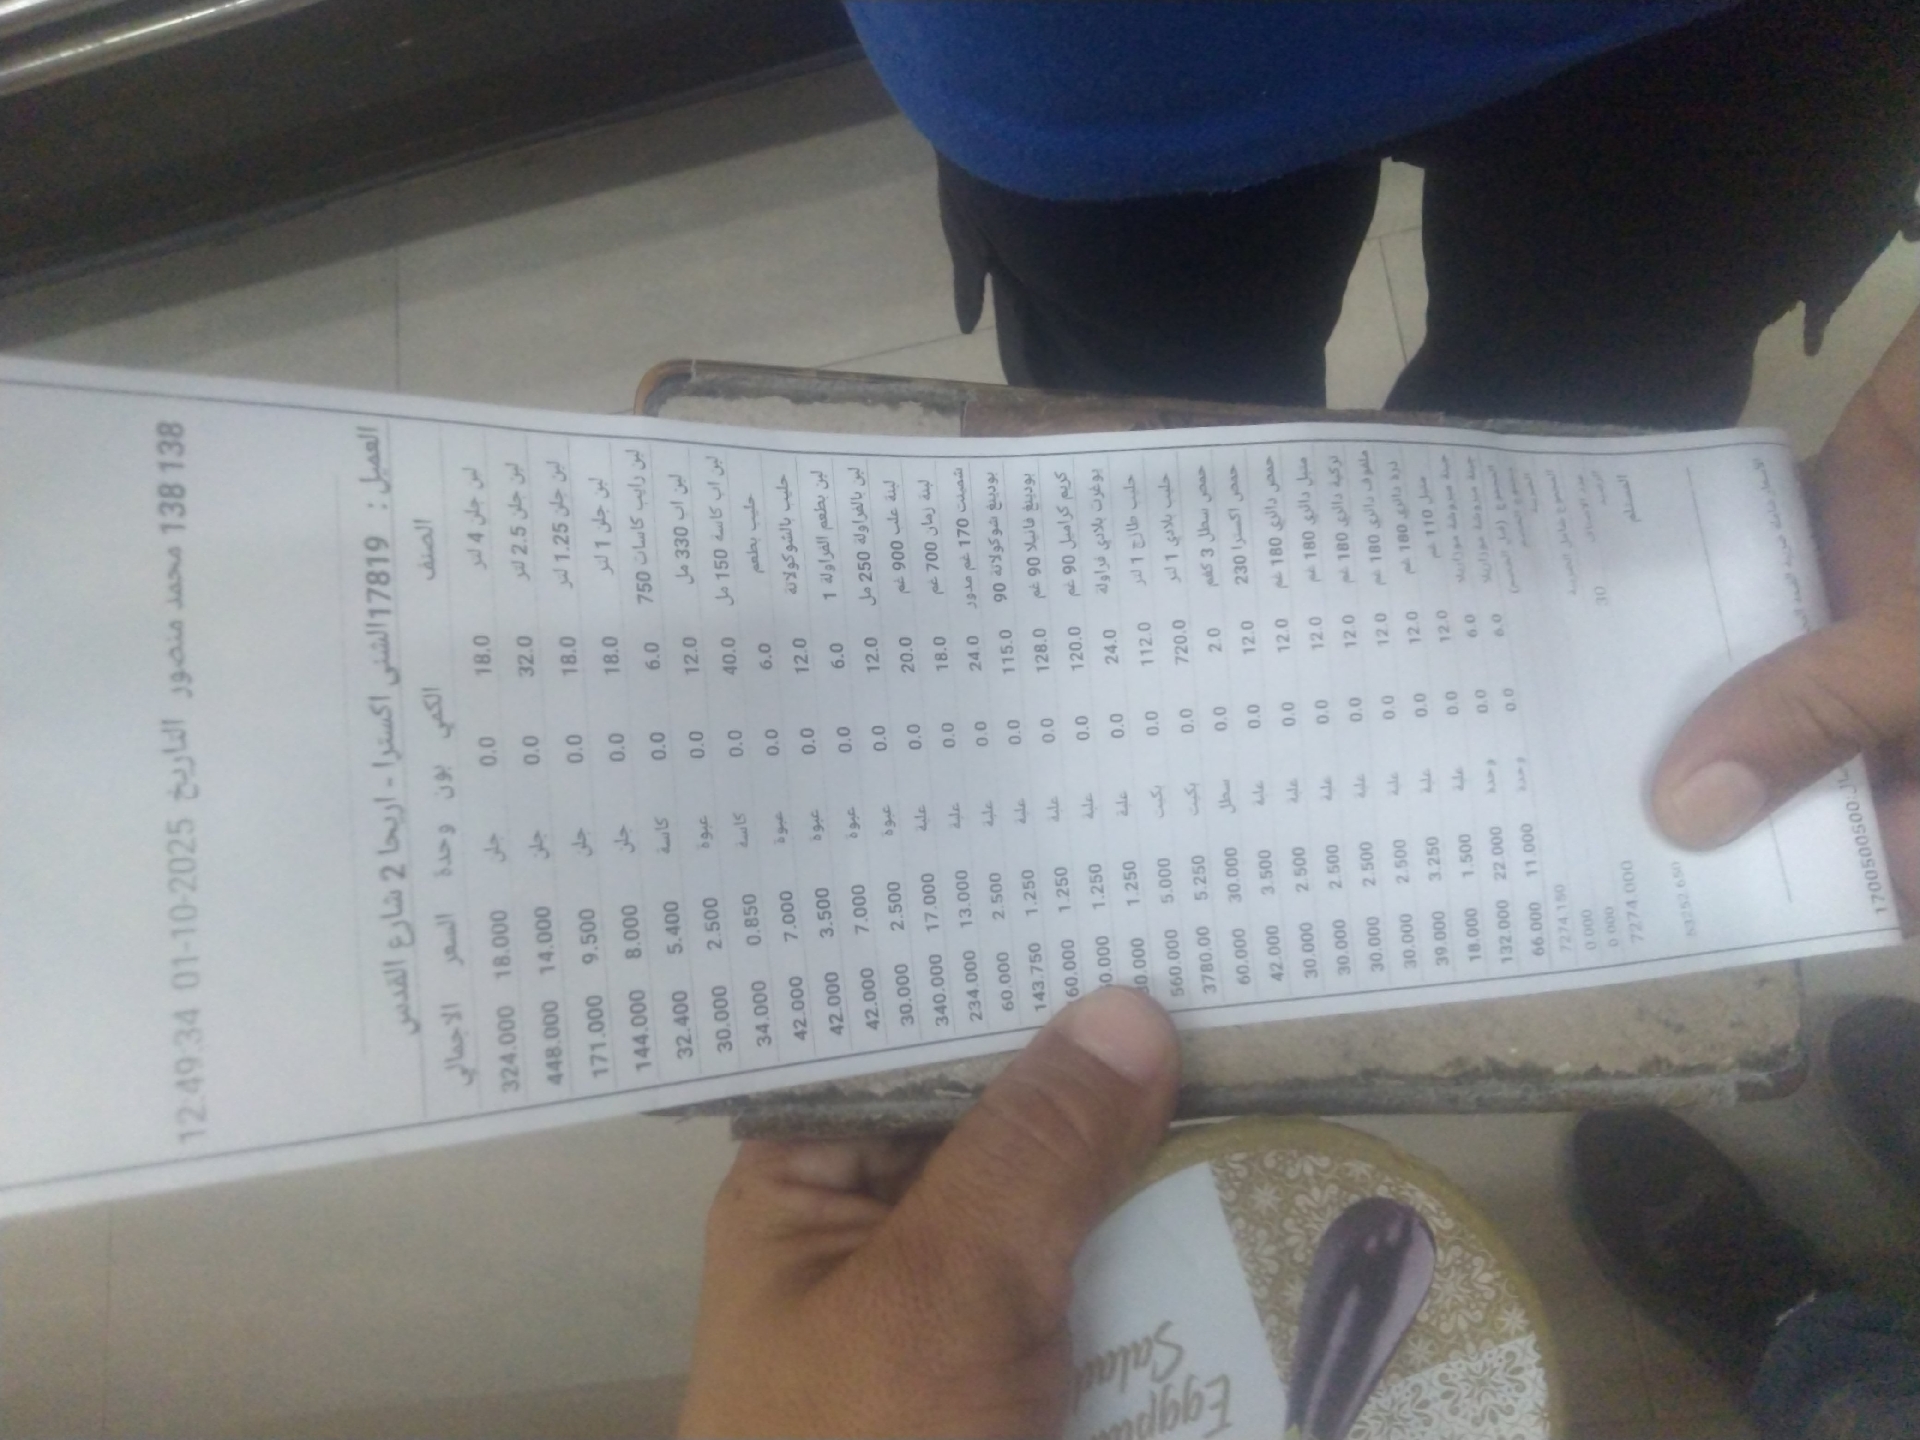 138 138 محمد منصور التاريخ 2025-10-01 12:49:34
العميل : 17819 الشني اكسترا - اريحا 2 شارع القدس
الصنف الكمي بون وحدة السعر الاجمالي
لبن جلن 4 لتر 18.0 0.0 جلن 18.000 324.000
لبن جلن 2.5 لتر 32.0 0.0 جلن 14.000 448.000
لبن جلن 1.25 لتر 18.0 0.0 جلن 9.500 171.000
لبن جلن 1 لتر 18.0 0.0 جلن 8.000 144.000
لبن رايب كاسات 750 6.0 0.0 كاسة 5.400 32.400
لبن اب 330 مل 12.0 0.0 عبوة 2.500 30.000
لبن اب كاسة 150 مل 40.0 0.0 كاسة 0.850 34.000
حليب بطعم 6.0 0.0 عبوة 7.000 42.000
حليب بالشوكولاتة 12.0 0.0 عبوة 3.500 42.000
لبن بطعم الفراولة 1 6.0 0.0 عبوة 7.000 42.000
لبن بالفراولة 250 مل 12.0 0.0 عبوة 2.500 30.000
لبنة علب 900 غم 20.0 0.0 علبة 17.000 340.000
لبنة زمان 700 غم 18.0 0.0 علبة 13.000 234.000
شمينت 170 غم مدور 24.0 0.0 علبة 2.500 60.000
بودينغ شوكولاتة 90 115.0 0.0 علبة 1.250 143.750
بودينغ فانيلا 90 غم 128.0 0.0 علبة 1.250 160.000
كريم كراميل 90 غم 120.0 0.0 علبة 1.250
يوغرت بلادي فراولة 24.0 0.0 علبة 1.250
حليب طازج 1 لتر 112.0 0.0 بكيت 5.000 560.000
حليب بلادي 1 لتر 720.0 0.0 بكيت 5.250 3780.00
حمص سطل 3 كغم 2.0 0.0 سطل 30.000 60.000
حمص اكسترا 230 12.0 0.0 علبة 3.500 42.000
حمص دالري 180 غم 12.0 0.0 علبة 2.500 30.000
متبل دالري 180 غم 12.0 0.0 علبة 2.500 30.000
تركية دالري 180 غم 12.0 0.0 علبة 2.500 30.000
ملفوف دالري 180 غم 12.0 0.0 علبة 2.500 30.000
ذرة دالري 180 غم 12.0 0.0 علبة 3.250 39.000
متبل 110 غم 12.0 0.0 علبة 1.500 18.000
جبنة مبروشة موزاريلا 6.0 0.0 وحدة 22.000 132.000
جبنة مبروشة موزاريلا 6.0 0.0 وحدة 11.000 66.000
7274.150
0.000
0.000
30
7274.000
المستلم
1700500500
Egyptian
Salad